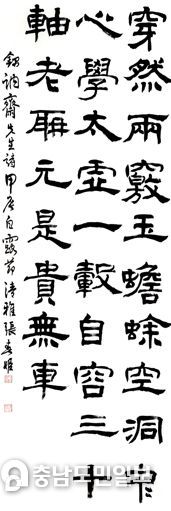 穿然兩竅玉蟾蜍空洞中
心學太虛一轂自容三十
軸老聃元是貴無車
齋先生詩甲辰白露節清雅張春姬
충남도민일보